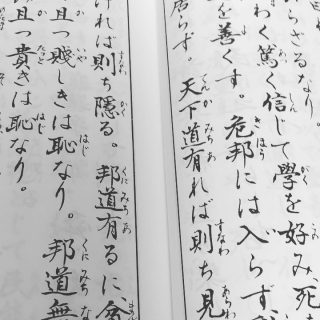 らざるなり。
わく篤く信じて學を好み死
を善くす。危邦には入らず、
居らず。天下道有れば則ち見
ければ則ち隱る。邦道有るに、
且つ賤しきは恥なり。邦道無
且つ貴きは恥なり。